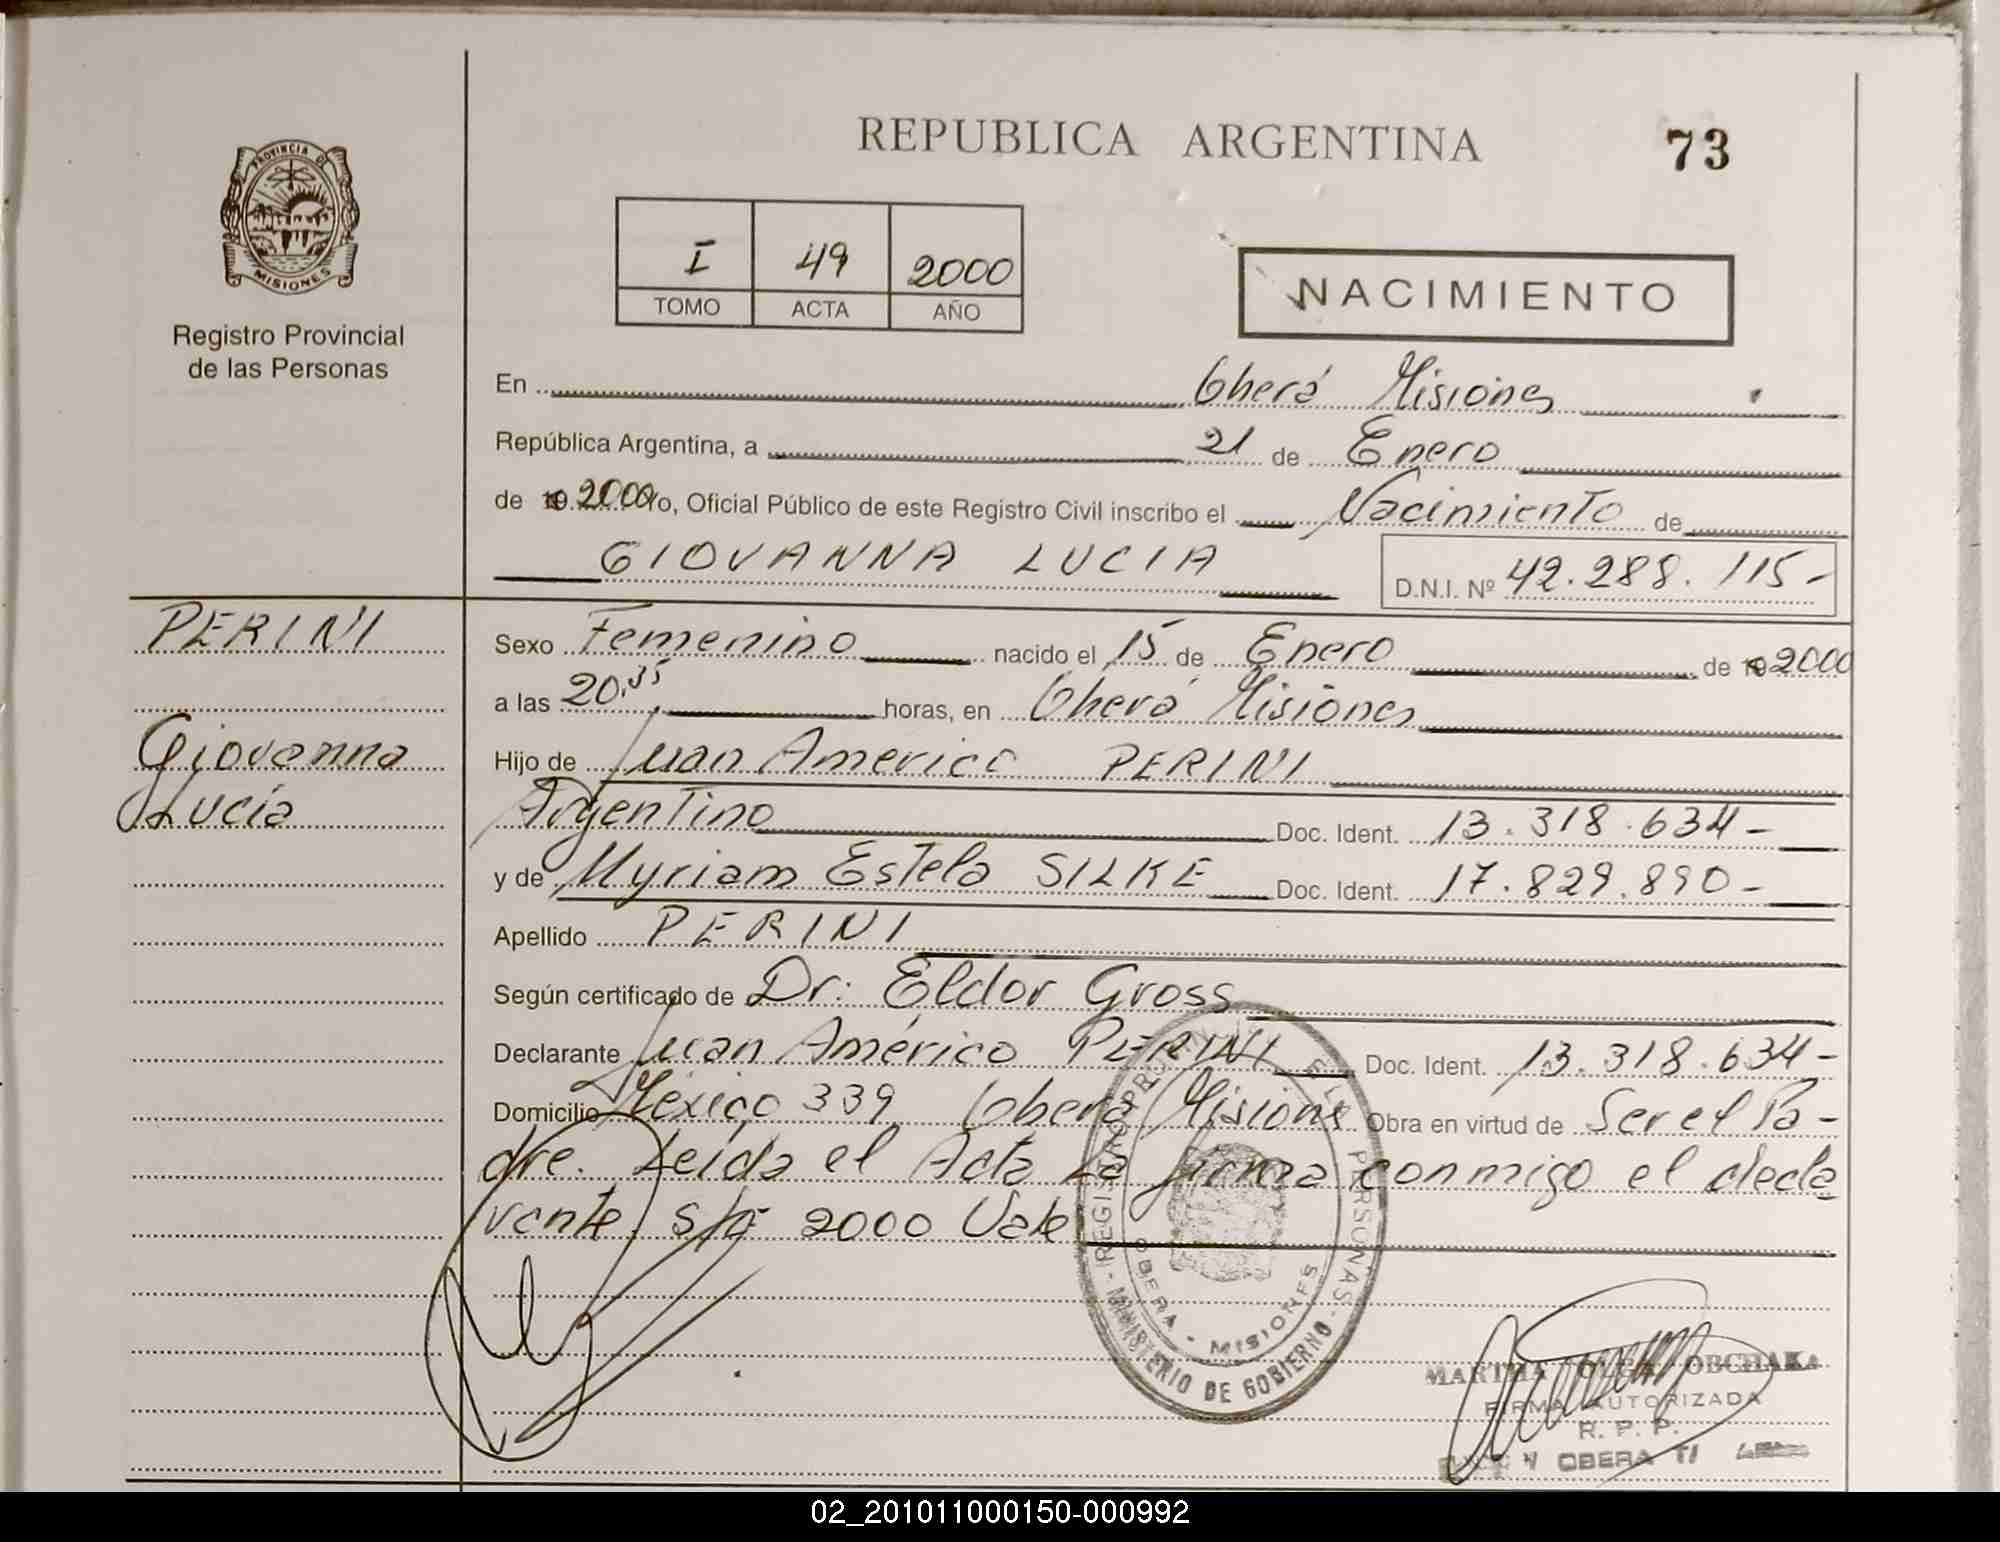 REPUBLICA ARGENTINA
73
PROVINCIA DE
MISIONES
Registro Provincial
de las Personas
I 49 2000
TOMO ACTA AÑO
NACIMIENTO
En Oberá Misiones
República Argentina, a 21 de Enero
de 19 2000 Yo, Oficial Público de este Registro Civil inscribo el Nacimiento de
GIOVANNA LUCIA D.N.I. Nº 42.288.115-
PERINI
Giovanna
Lucía
Sexo Femenino nacido el 15 de Enero de 19 2000
a las 20,35 horas, en Oberá Misiones
Hijo de Juan Americo PERINI
Argentino Doc. Ident. 13.318.634-
y de Myriam Estela SILKE Doc. Ident. 17.829.890-
Apellido PERINI
Según certificado de Dr: Eldor Gross
Declarante Juan Américo PERINI Doc. Ident. 13.318.634-
Domicilio México 339 Oberá Misiones Obra en virtud de Ser el Pa-
dre. Leida el Acta La firma conmigo el decla
rante. s/r 2000 Vale
REGISTRO PROVINCIAL DE LAS PERSONAS
OBERA - MISIONES
MINISTERIO DE GOBIERNO
MARTHA OLGA OBCHAKA
FIRMA AUTORIZADA
R. P. P.
OBERA
02_201011000150-000992